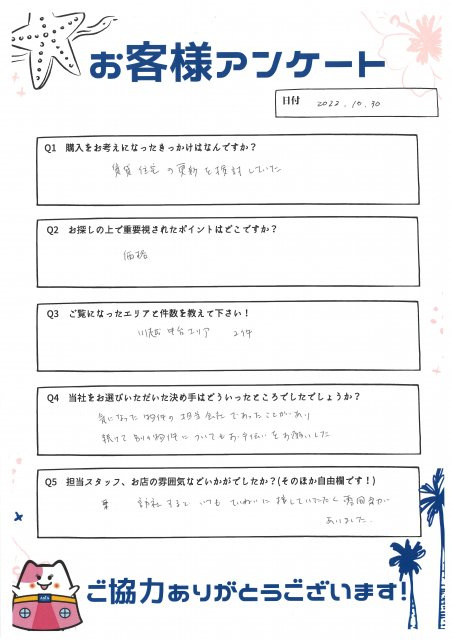 お客様アンケート
日付 2022.10.30
Q1 購入をお考えになったきっかけはなんですか？
賃貸住宅の更新を検討していた
Q2 お探しの上で重要視されたポイントはどこですか？
価格
Q3 ご覧になったエリアと件数を教えて下さい！
川越 エリア 2件
Q4 当社をお選びいただいた決め手はどういったところでしたでしょうか？
気になった物件の担当会社であったことがあり
続けて別の物件についてもお手伝いをお願いした
Q5 担当スタッフ、お店の雰囲気などいかがでしたか？(そのほか自由欄です！)
訪社するといつもていねいに接していただく雰囲気が
ありました.
ご協力ありがとうございます!